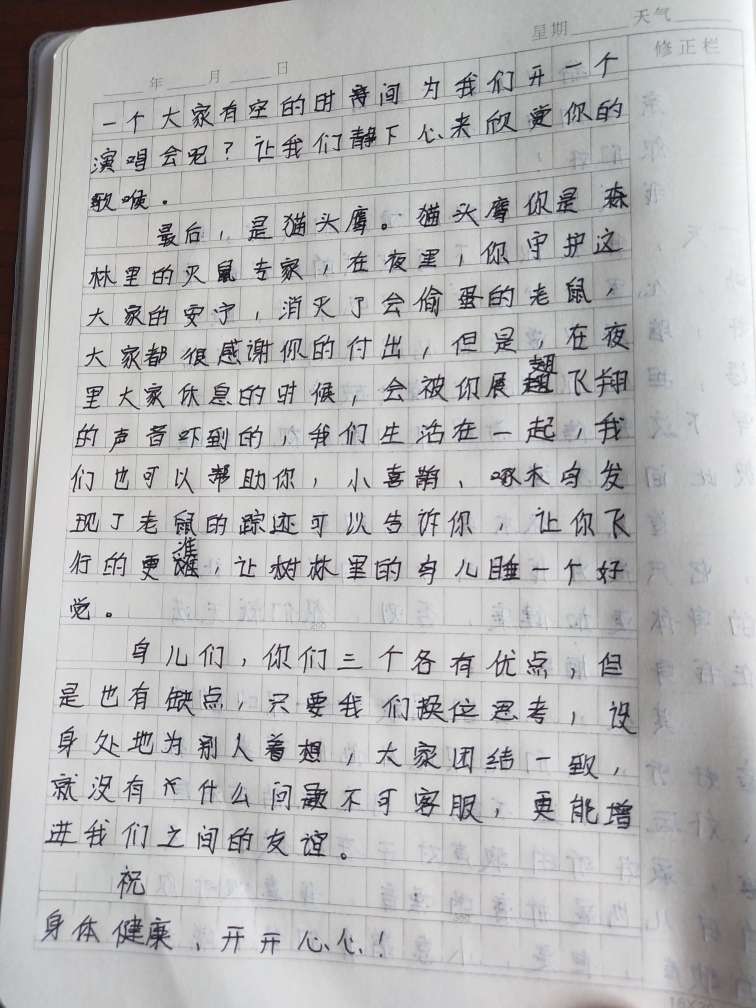 星期 天气
年 月 日
修正栏
一个大家有空的时间为我们开一个
演唱会吧？让我们静下心来欣赏你的
歌喉。
最后，是猫头鹰。猫头鹰你是森
林里的灭鼠专家，在夜里，你守护这
大家的安宁，消灭了会偷蛋的老鼠，
大家都很感谢你的付出，但是，在夜
里大家休息的时候，会被你展翅飞翔
的声音吓到的，我们生活在一起，我
们也可以帮助你，小喜鹊，啄木鸟发
现了老鼠的踪迹可以告诉你，让你飞
行的更准，让树林里的鸟儿睡一个好
觉。
鸟儿们，你们三个各有优点，但
是也有缺点，只要我们换位思考，设
身处地为别人着想，大家团结一致，
就没有什么问题不可客服，更能增
进我们之间的友谊。
祝
身体健康、开开心心！